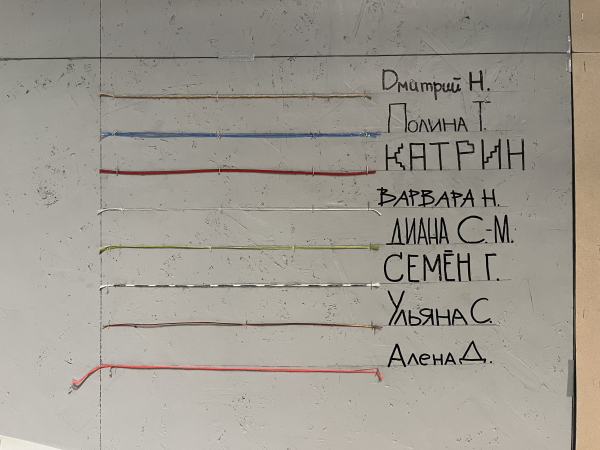 Дмитрий Н.
Полина Т.
КАТРИН
ВАРВАРА Н.
ДИАНА С-М.
СЕМЁН Г.
Ульяна С.
Алена Д.